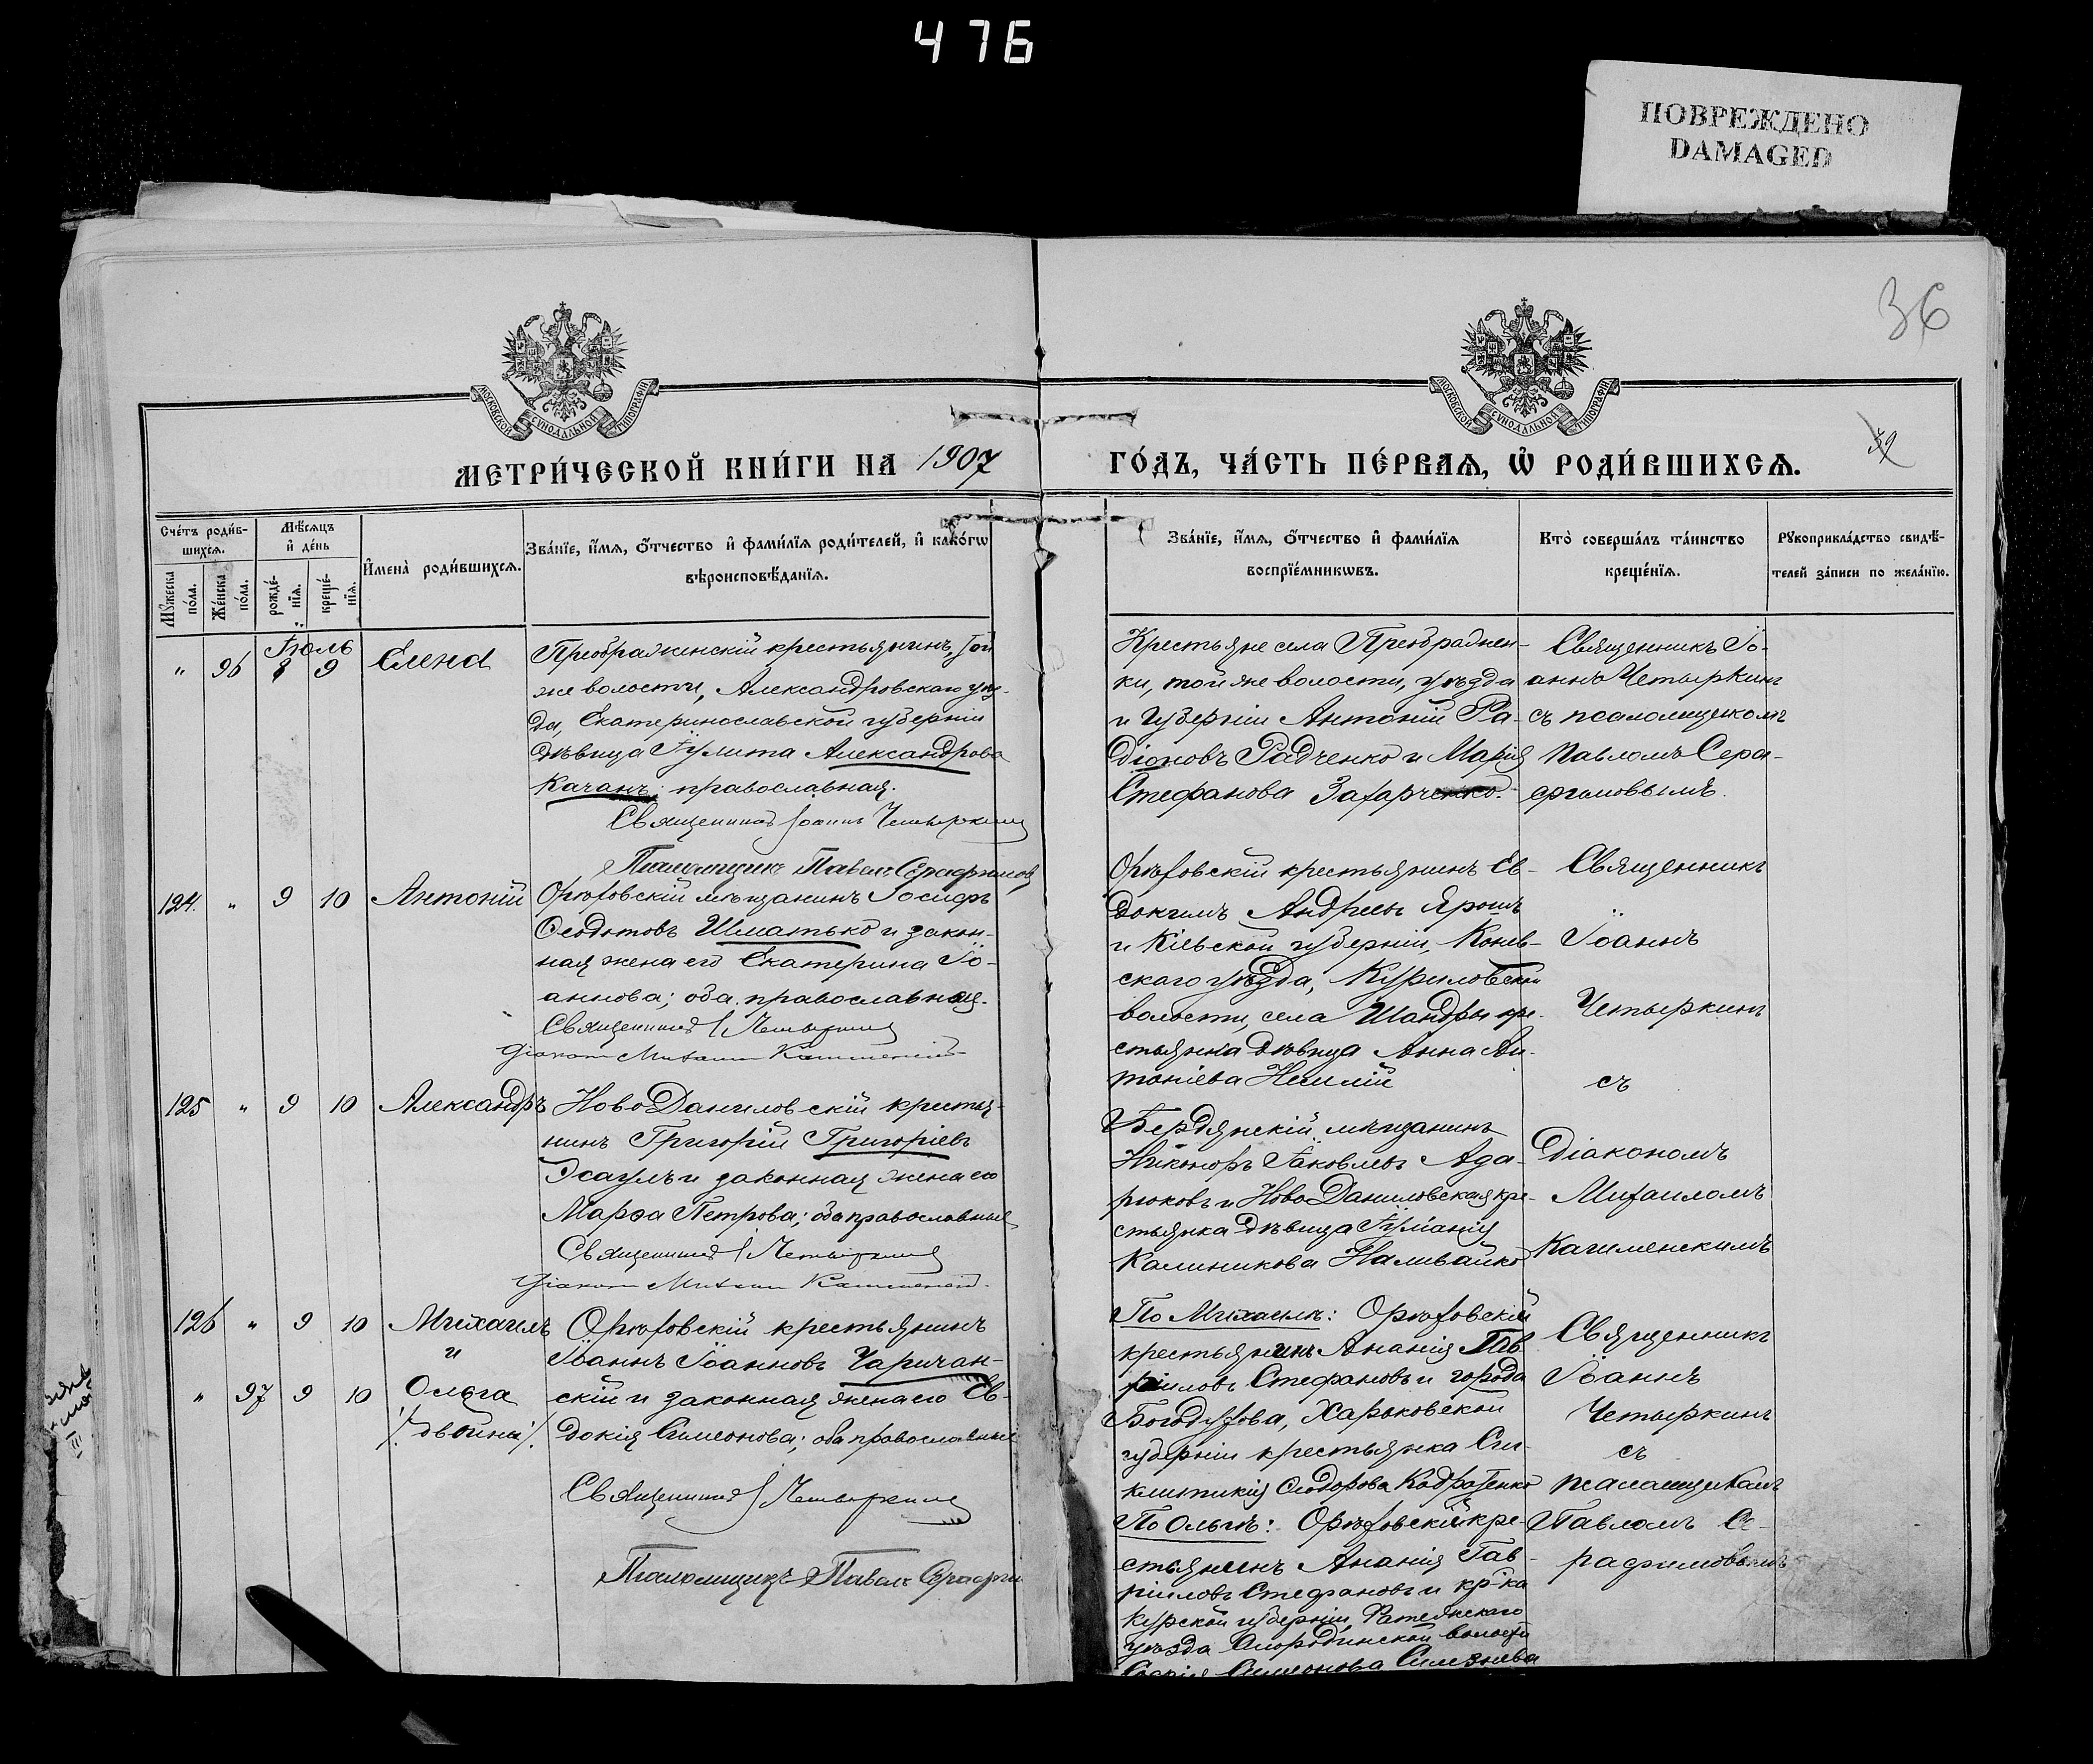 476
ПОВРЕЖДЕНО
DAMAGED
36
МОСКОВСКОЙ СѴНОДАЛЬНОЙ ТИПОГРАФІИ
МОСКОВСКОЙ СѴНОДАЛЬНОЙ ТИПОГРАФІИ
МЕТРИ́ЧЕСКОЙ КНИ́ГИ НА 1907
ГО́ДЪ, ЧА́СТЬ ПЕ́РВАѦ, Ѡ҆ РОДИ́ВШИХСѦ.
Сче́тъ роди́в-
шихсѧ.
Мꙋжеска по́ла.
Же́нска по́ла.
Мѣ́сѧцъ
и҆ де́нь
рожде́-
нїѧ.
креще́-
нїѧ.
И҆мена̀ роди́вшихсѧ.
Зва́нїе, и҆́мѧ, ѻ҆́тчество и҆ фами́лїѧ роди́телей, и҆ како́гѡ
вѣроисповѣ́данїѧ.
Зва́нїе, и҆́мѧ, ѻ҆́тчество и҆ фами́лїѧ
воспрїе́мникѡвъ.
Кто̀ соверша́лъ та́инство
креще́нїѧ.
Рꙋкоприкла́дство свидѣ́-
телей за́писи по жела́нїю.
Іюль
" 96 8 9 Елена
Преображенскій крестьянинъ, той
же волости, Александровскаго уѣз-
да, Екатеринославской губерніи
дѣвица Іулита Александрова
Качанъ; православная.
Священникъ Іоаннъ Четыркинъ
Псаломщикъ Павелъ Серафимовъ
Крестьяне села Преображен-
ки, той же волости, уѣзда
и губерніи Антоній Ра-
діоновъ Радченко и Марія
Стефанова Захарченко.
Священникъ Іо-
аннъ Четыркинъ
съ псаломщикомъ
Павломъ Сера-
фимовымъ.
124. " 9 10 Антоній
Орѣховскій мѣщанинъ Іосифъ
Ѳеодотовъ Шматько и закон-
ная жена его Екатерина Іо-
аннова; оба православные.
Священникъ І Четыркинъ
Діаконъ Михаилъ Каменскій
Орѣховскій крестьянинъ Ев-
докимъ Андреевъ Ярошъ
и Кіевской губерніи, Конев-
скаго уѣзда, Куриловской
волости, села Шандры кре-
стьянка дѣвица Анна Ан-
тоніева
Священникъ
Іоаннъ
Четыркинъ
съ
125 " 9 10 Александръ
НовоДаниловскій крестья-
нинъ Григорій Григоріевъ
Эсаулъ и законная жена его
Марѳа Петрова; оба православные
Священникъ І Четыркинъ
Діаконъ Михаилъ Каменскій.
Бердянскій мѣщанинъ
Никоноръ Іаковлевъ Ада-
рюковъ и НовоДаниловская кре-
стьянка дѣвица Іуліанія
Калиникова Наливайко
Діакономъ
Михаиломъ
Каменскимъ
126 " 9 10 Михаилъ
и
" 97 9 10 Ольга
/двойни/.
Орѣховскій крестьянинъ
Іоаннъ Іоанновъ Чаричан-
скій и законная жена его Ев-
докія Симеонова; оба православные
Священникъ І Четыркинъ
Псаломщикъ Павелъ Серафим
По Михаилѣ: Орѣховскій
крестьянинъ Ананія Гав-
ріиловъ Стефановъ и города
Богодухова, Харьковской
губерніи крестьянка Син-
клитикія Ѳеодорова
По Ольгѣ: Орѣховскій кре-
стьянинъ Ананія Гав-
ріиловъ Стефановъ и кр-ка
Курской губерніи, Фатежскаго
уѣзда Смородинской волости
Симеонова
Священникъ
Іоаннъ
Четыркинъ
съ
псаломщикомъ
Павломъ Се-
рафимовымъ